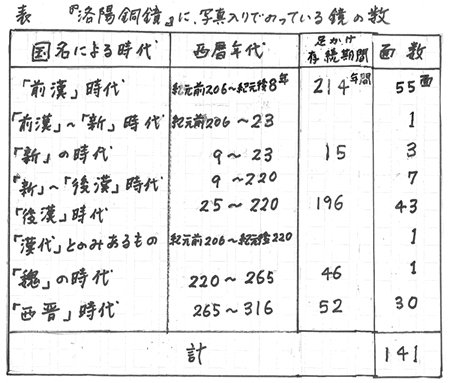 表 『洛陽銅鏡』に、写真入りでのっている鏡の数
国名による時代 西暦年代 足かけ存続期間 面数
「前漢」時代 紀元前206～紀元後8年 214年間 55面
「前漢」～「新」時代 紀元前206～23 1
「新」の時代 9～23 15 3
「新」～「後漢」時代 9～220 7
「後漢」時代 25～220 196 43
「漢代」とのみあるもの 紀元前206～紀元後220 1
「魏」の時代 220～265 46 1
「西晋」時代 265～316 52 30
計 141